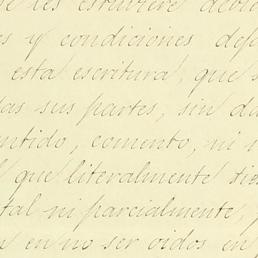 les estuviere
y condiciones
esta escritura, que
sus partes, sin
comento, ni
que literalmente
tal ni parcialmente,
en no ser oidos en